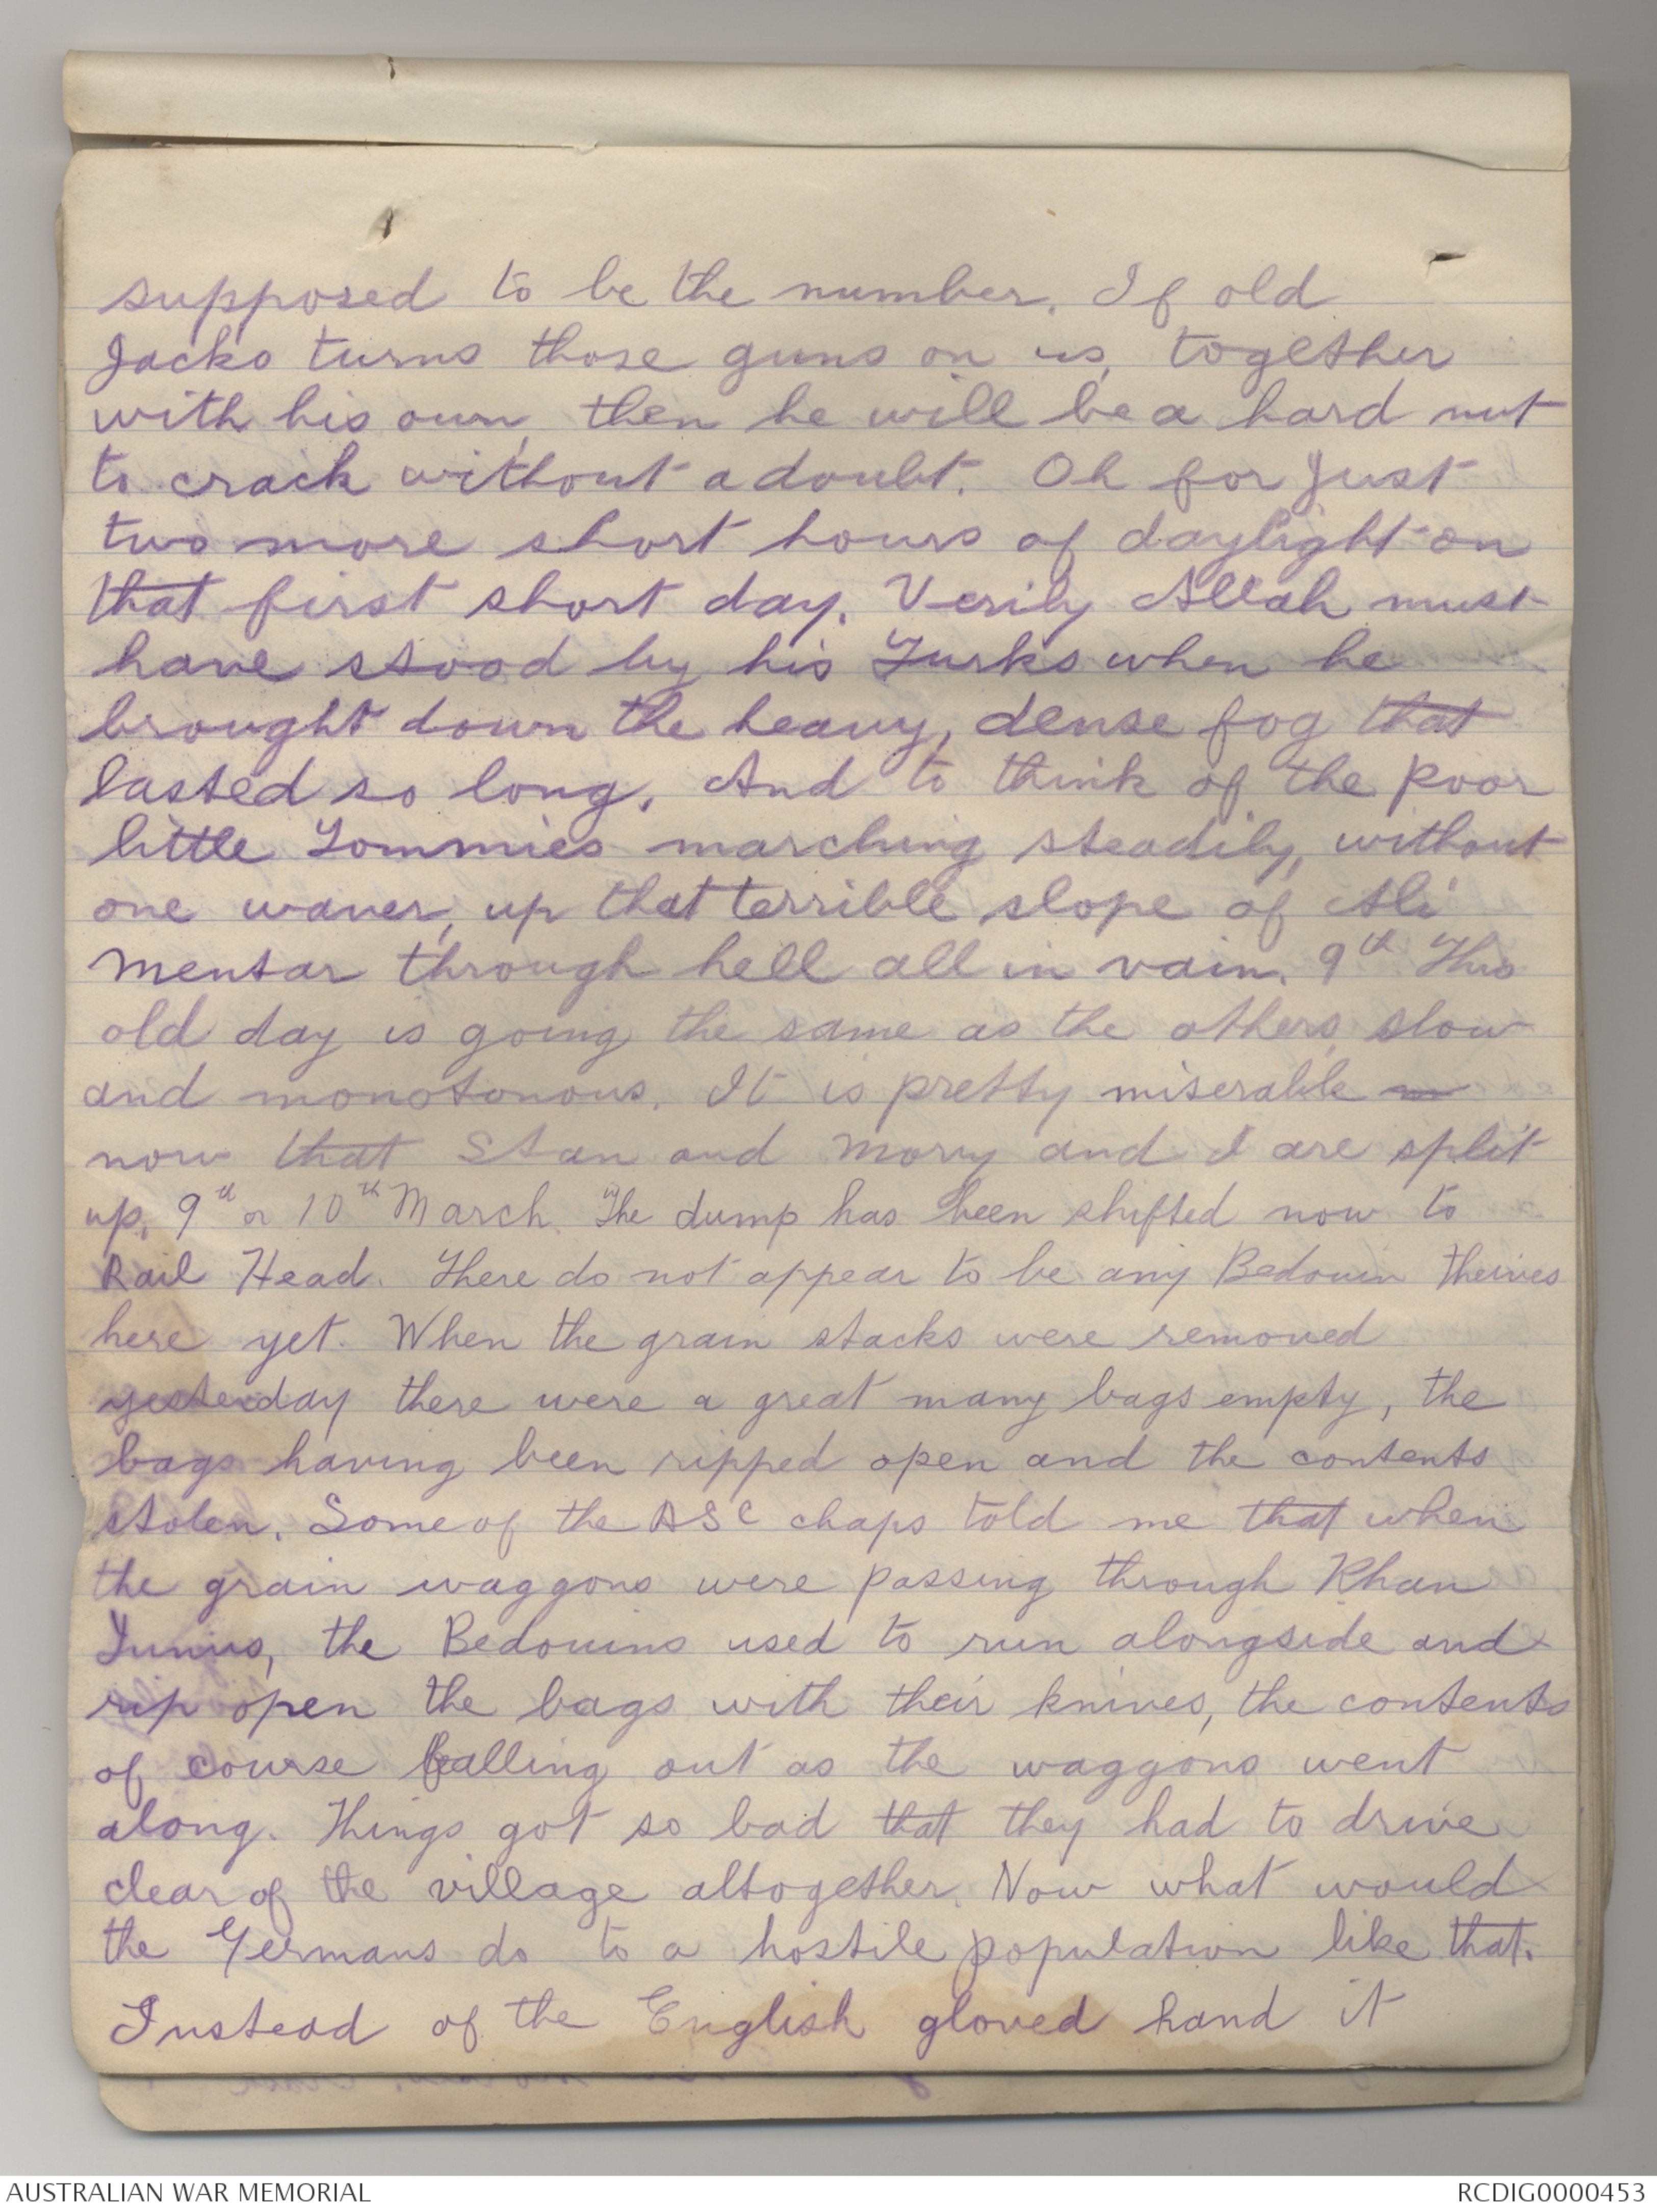 supposed to be the number. If old
Jacko turns those guns on us, together
with his own, then he will be a hard nut
to crack without a doubt. Oh for just
two more short hours of daylight on
that first short day. Verily Allah must
have stood by his Turks when he
brought down the heavy, dense fog that
lasted so long. And to think of the poor
little Tommies marching steadily, without
one waver, up that terrible slope of Ali
Mentar through hell all in vain. 9th This
old day is going the same as the others, slow
and monotonous. It is pretty miserable
now that Stan and Morry and I are split
up. 9th or 10th March. The dump has been shifted now to
Rail Head. There do not appear to be any Bedouin theives
here yet. When the grain stacks were removed
yesterday there were a great many bags empty, the
bags having been ripped open and the contents
stolen. Some of the ASC chaps told me that when
the grain waggons were passing through Khan
Yunus, the Bedouins used to run alongside and
rip open the bags with their knives, the contents
of course falling out as the waggons went
along. Things got so bad that they had to drive
clear of the village altogether. Now what would
the Germans do to a hostile population like that.
Instead of the English gloved hand it
AUSTRALIAN WAR MEMORIAL
RCDIG0000453